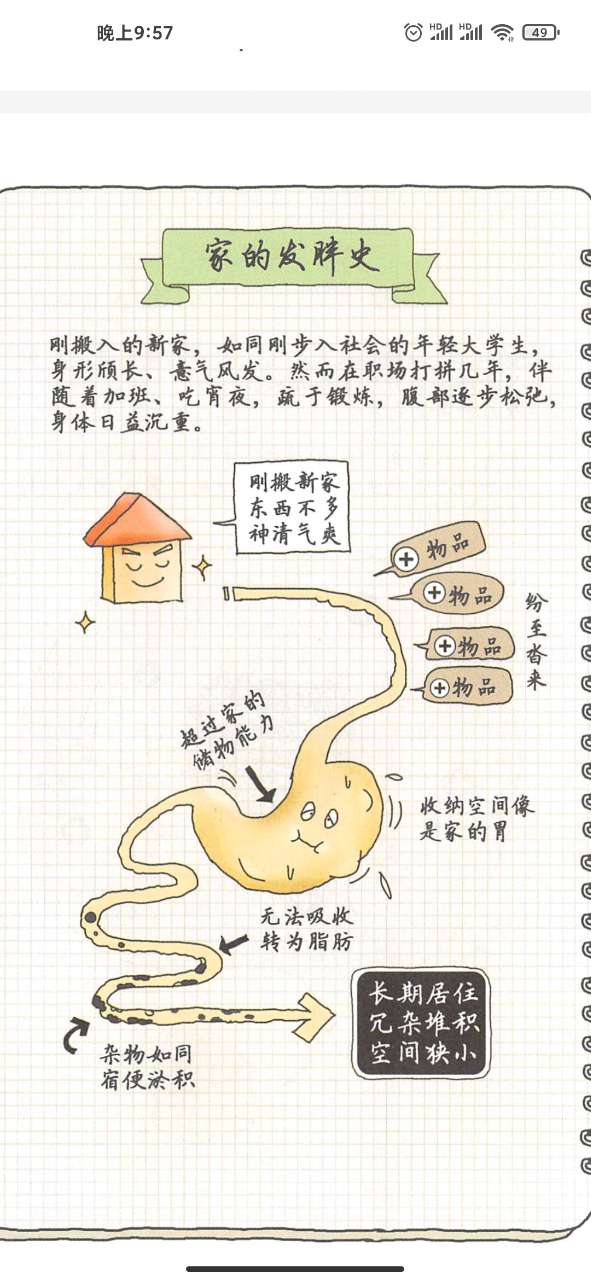 晚上9:57
HD HD 49
家的发胖史
刚搬入的新家，如同刚步入社会的年轻大学生，
身形颀长、意气风发。然而在职场打拼几年，伴
随着加班、吃宵夜，疏于锻炼，腹部逐步松弛，
身体日益沉重。
刚搬新家
东西不多
神清气爽
+ 物品
+ 物品
+ 物品
+ 物品
纷至沓来
超过家的
储物能力
收纳空间像
是家的胃
无法吸收
转为脂肪
杂物如同
宿便淤积
长期居住
冗杂堆积
空间狭小